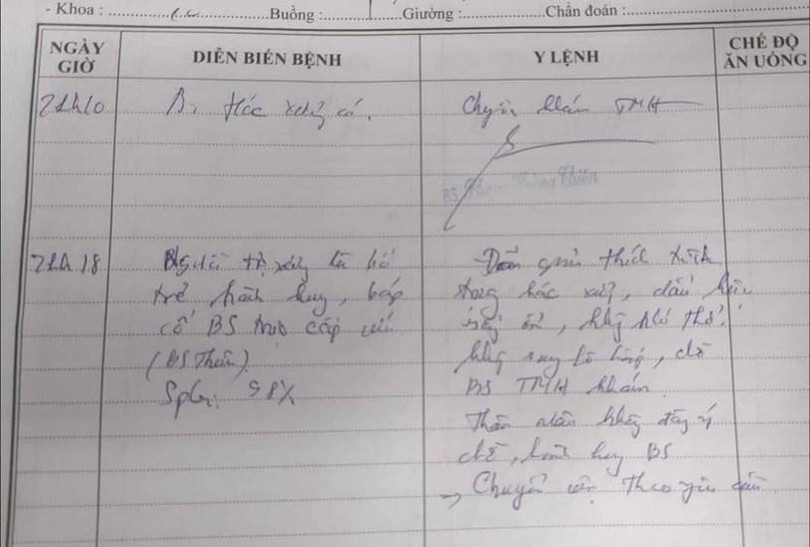 - Khoa : Buồng : Giường : Chẩn đoán :
NGÀY GIỜ
DIỄN BIẾN BỆNH
Y LỆNH
CHẾ ĐỘ ĂN UỐNG
21h10
Hóc xương cá.
Chuyển khám TMH
BS
21h18
Người tự xưng là bố
trẻ hành hung, bóp
cổ BS trực cấp cứu
(BS Thiên)
SpO2: 98%
giải thích tình
trạng hóc xương, dấu hiệu
sống ổn, không khó thở,
không suy hô hấp, chờ
BS TMH khám
Thân nhân không đồng ý
chờ, hành hung BS
→ Chuyển viện theo yêu cầu